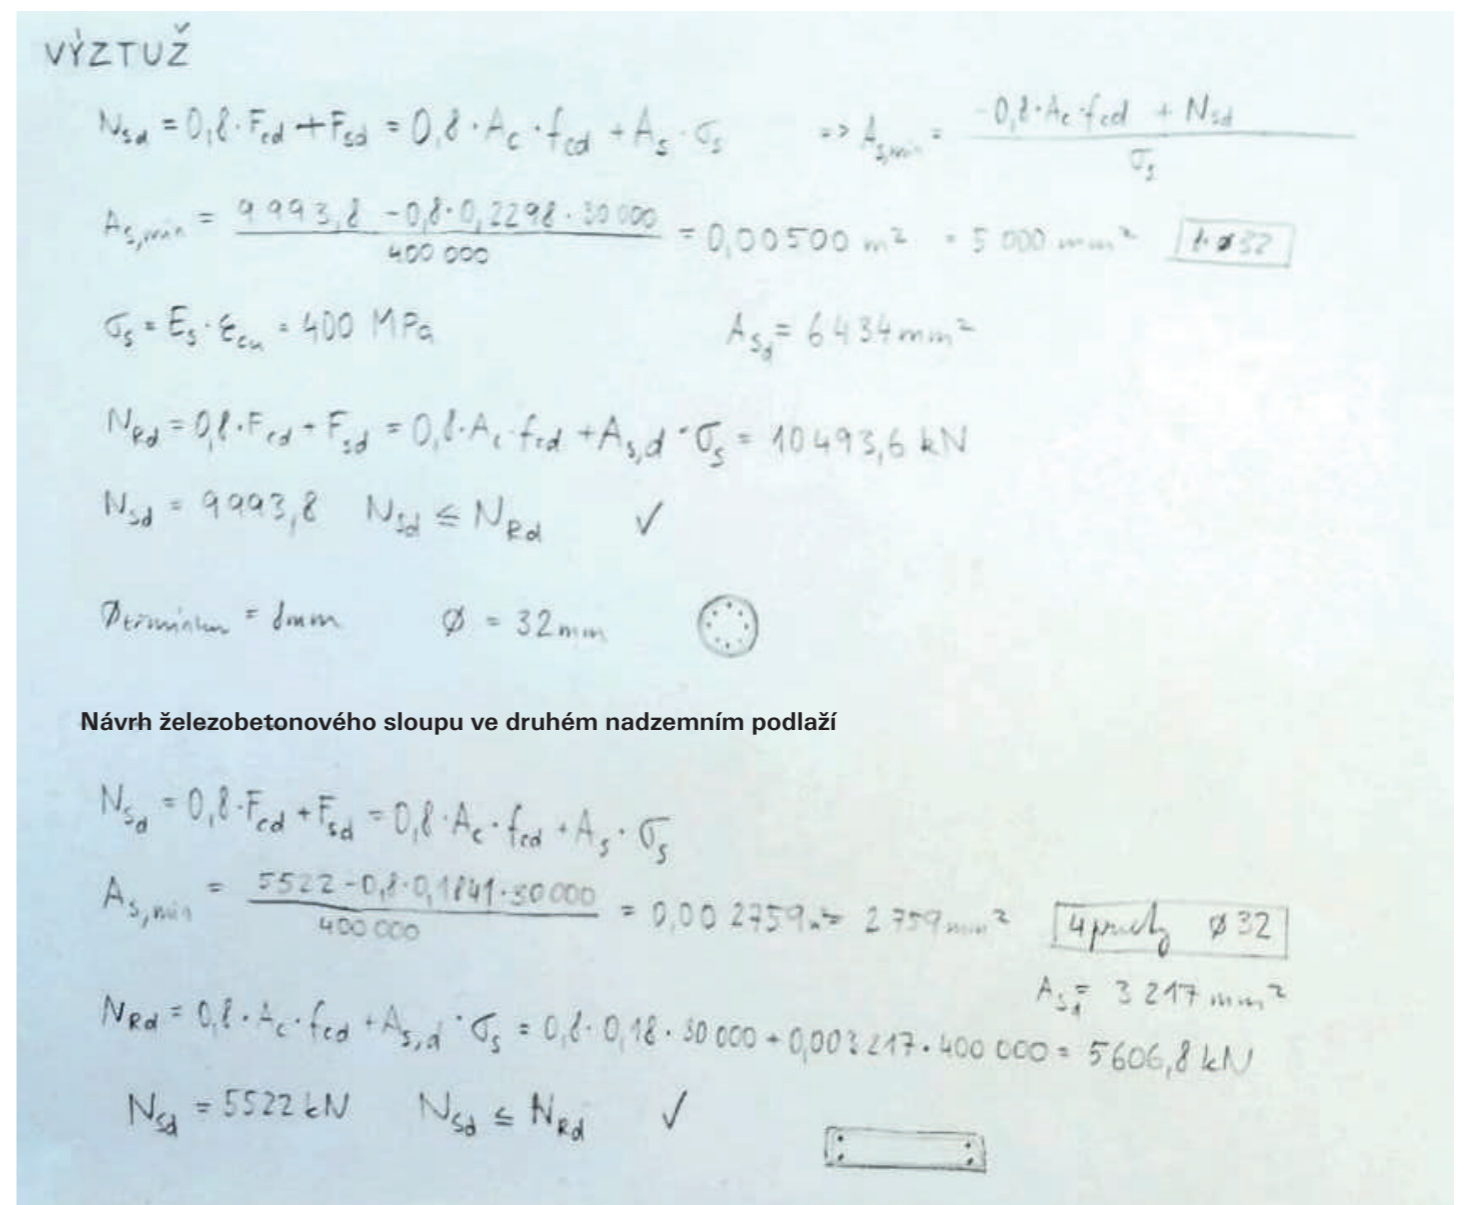 VÝZTUŽ
N_Sd = 0,8 · F_cd + F_sd = 0,8 · A_c · f_cd + A_s · σ_s => A_s,min = (-0,8 · A_c · f_cd + N_sd) / σ_s
A_s,min = (9993,8 - 0,8 · 0,2298 · 30 000) / 400 000 = 0,00500 m² = 5 000 mm² 8 ø32
σ_s = E_s · ε_cu = 400 MPa A_sd = 6434 mm²
N_Rd = 0,8 · F_cd + F_sd = 0,8 · A_c · f_cd + A_s,d · σ_s = 10493,6 kN
N_Sd = 9993,8 N_Sd ≤ N_Rd ✓
Ø třmínku = 8mm Ø = 32mm
Návrh železobetonového sloupu ve druhém nadzemním podlaží
N_Sd = 0,8 · F_cd + F_sd = 0,8 · A_c · f_cd + A_s · σ_s
A_s,min = (5522 - 0,8 · 0,1841 · 30000) / 400 000 = 0,002759 m² = 2759 mm² 4 pruty ø32
A_sd = 3 217 mm²
N_Rd = 0,8 · A_c · f_cd + A_s,d · σ_s = 0,8 · 0,18 · 30 000 + 0,003217 · 400 000 = 5606,8 kN
N_Sd = 5522 kN N_Sd ≤ N_Rd ✓